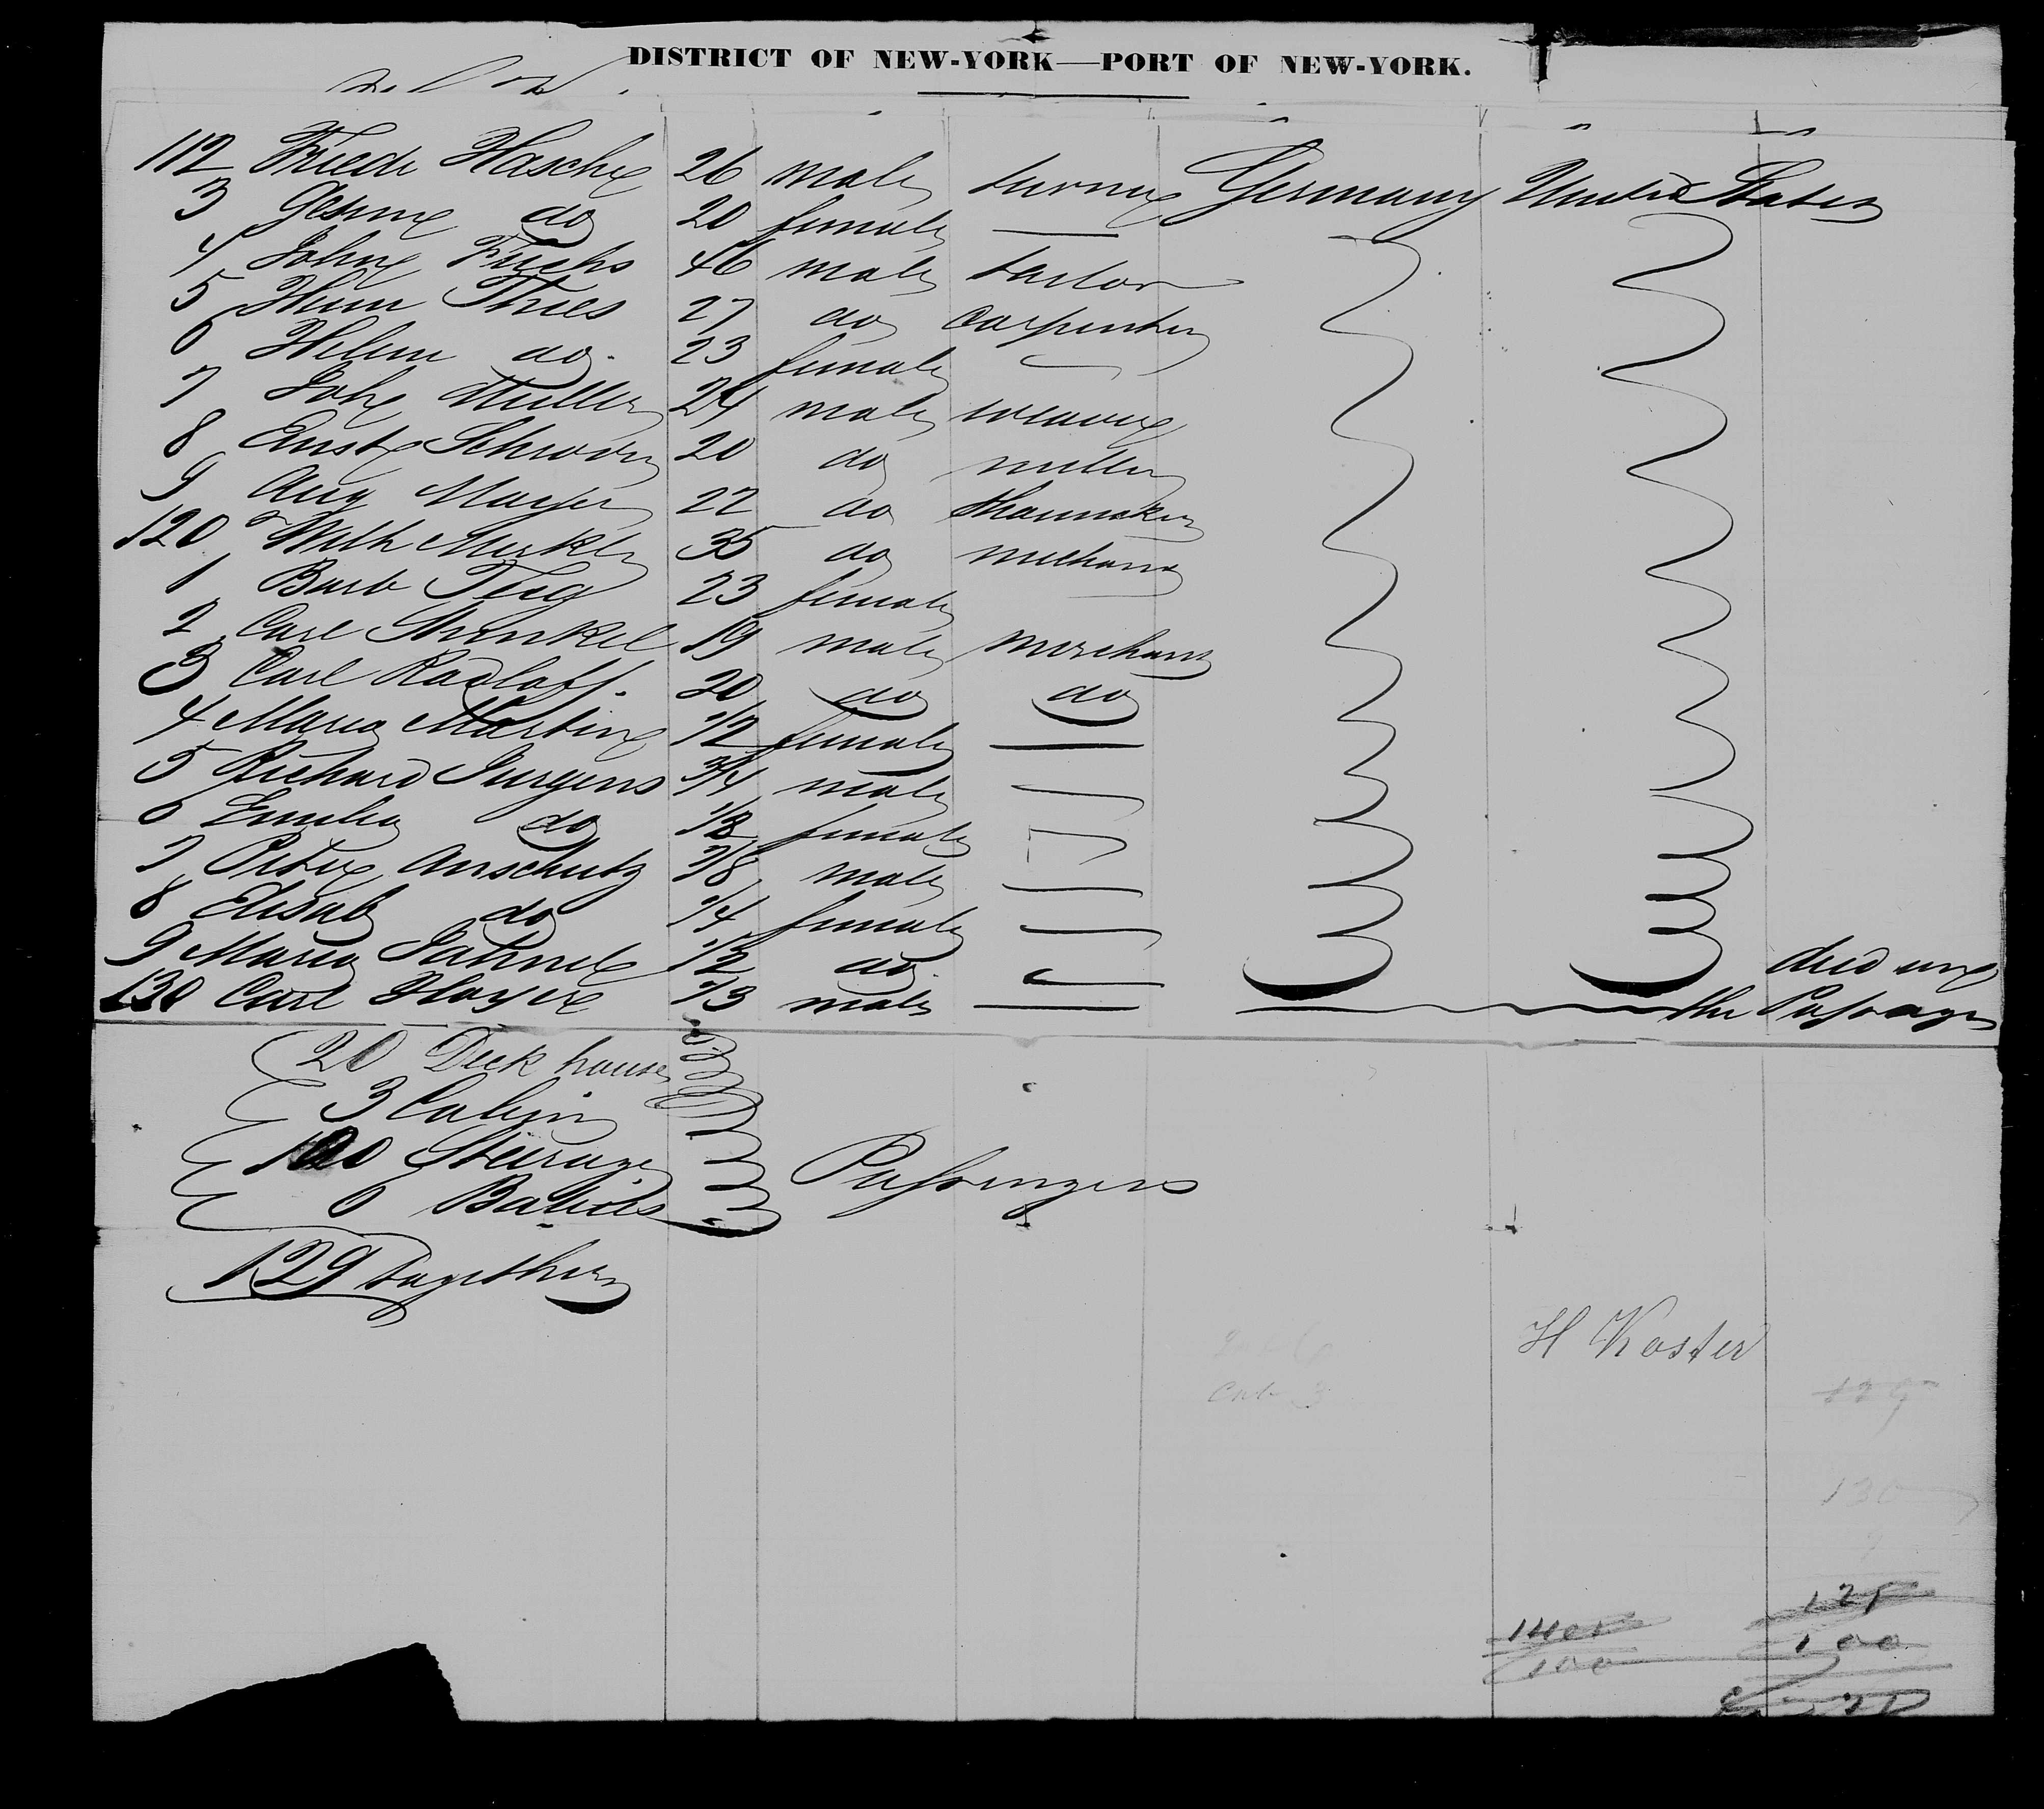 DISTRICT OF NEW-YORK—PORT OF NEW-YORK.
112 Friedr Hasche 26 male turner Germany United States
3 Gesine do 20 female —
4 Johne Fuchs 46 male tailor
5 Herm Thies 27 do carpenter
6 Helene do 23 female —
7 Joh Muller 24 male weaver
8 Ernst Schroder 20 do miller
9 Aug Mayer 22 do Shoemaker
120 Wilh Merkle 35 do mechanic
1 Barb 23 female
2 Carl Strenkel 19 male merchant
3 Carl Radloff. 20 do do
4 Maria Martine 1/2 female —
5 Richard Jurgens 3/4 male
6 Emilia do 1/8 female
7 Peter Anschutz 7/8 male
8 Elisab do 1/4 female
9 Maria Jahnel 1/2 do died on
130 Carl Hoyer 1/3 male — the Passage
20 Deck house
3 Cabin
100 Steerage Passengers
6 Babies
129 together
H Koster
Cab 3
129
130
128
1400 100
100
28